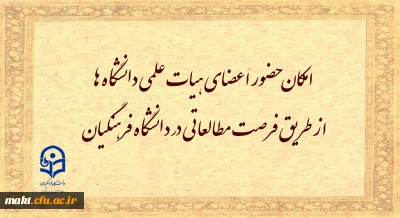 امکان حضور اعضای هیات علمی دانشگاه ها
از طریق فرصت مطالعاتی در دانشگاه فرهنگیان
دانشگاه فرهنگیان
makt.cfu.ac.ir